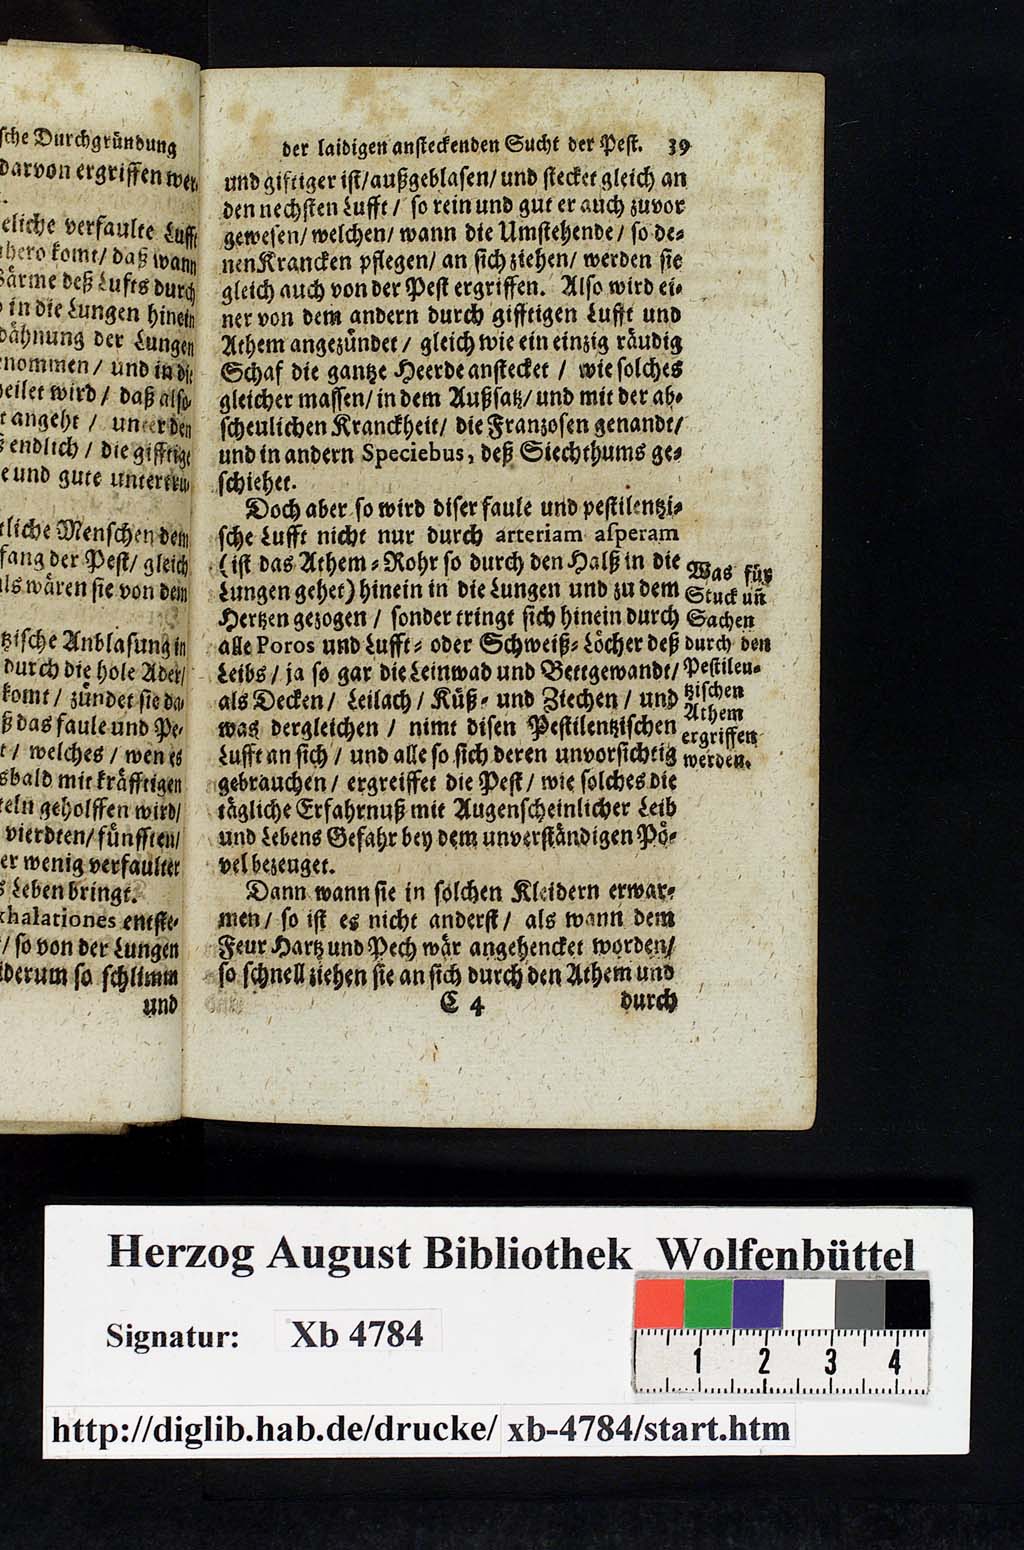 sche Durchgründung
darvon ergriffen wer,
eliche verfaulte Lufft
hero komt/ daß wann
Wärme deß Lufts durch
in die Lungen hinein
dähnung der Lungen
nommen/ und in die
heilet wird/ daß also
t angeht/ unter den
endlich/ die gifftige
e und gute untertru,
tliche Menschen dem
fang der Pest/ gleich
als wären sie von dem
tzische Anblasung in
durch die hole Ader/
komt/ zündet sie da,
ß das faule und Pe-
t/ welches/ wen es
sbald mit kräfftigen
teln geholffen wird/
vierdten/ fünfften/
er wenig verfaulter
s Leben bringt.
xhalationes entste-
t/ so von der Lungen
iderum so schlimm
und
der laidigen ansteckenden Sucht der Pest. 39
und giftiger ist/ außgeblasen/ und stecket gleich an
den nechsten Lufft/ so rein und gut er auch zuvor
gewesen/ welchen/ wann die Umstehende/ so de-
nen Krancken pflegen/ an sich ziehen/ werden sie
gleich auch von der Pest ergriffen. Also wird ei-
ner von dem andern durch gifftigen Lufft und
Athem angezündet/ gleich wie ein einzig räudig
Schaf die gantze Heerde anstecket/ wie solches
gleicher massen/ in dem Außsatz/ und mit der ab-
scheulichen Kranckheit/ die Franzosen genandt/
und in andern Speciebus, deß Siechthums ge-
schiehet.
Doch aber so wird diser faule und pestilentzi-
sche Lufft nicht nur durch arteriam asperam
(ist das Athem-Rohr so durch den Halß in die
Lungen gehet) hinein in die Lungen und zu dem
Hertzen gezogen/ sonder tringt sich hinein durch
alle Poros und Lufft- oder Schweiß-Löcher deß
Leibs/ ja so gar die Leinwad und Bettgewandt/
als Decken/ Leilach/ Küß- und Ziechen/ und
was dergleichen/ nimt disen Pestilentzischen
Lufft an sich/ und alle so sich deren unvorsichtig
gebrauchen/ ergreiffet die Pest/ wie solches die
tägliche Erfahrnuß mit Augenscheinlicher Leib
und Lebens Gefahr bey dem unverständigen Pö-
vel bezeuget.
Dann wann sie in solchen Kleidern erwar-
men/ so ist es nicht anderst/ als wann dem
Feur Hartz und Pech wär angehencket worden/
so schnell ziehen sie an sich durch den Athem und
C 4 durch
Was für
Stuck uñ
Sachen
durch den
Pestilen-
tzischen
Athem
ergriffen
werden.
Herzog August Bibliothek Wolfenbüttel
Signatur: Xb 4784
1 2 3 4
http://diglib.hab.de/drucke/ xb-4784/start.htm